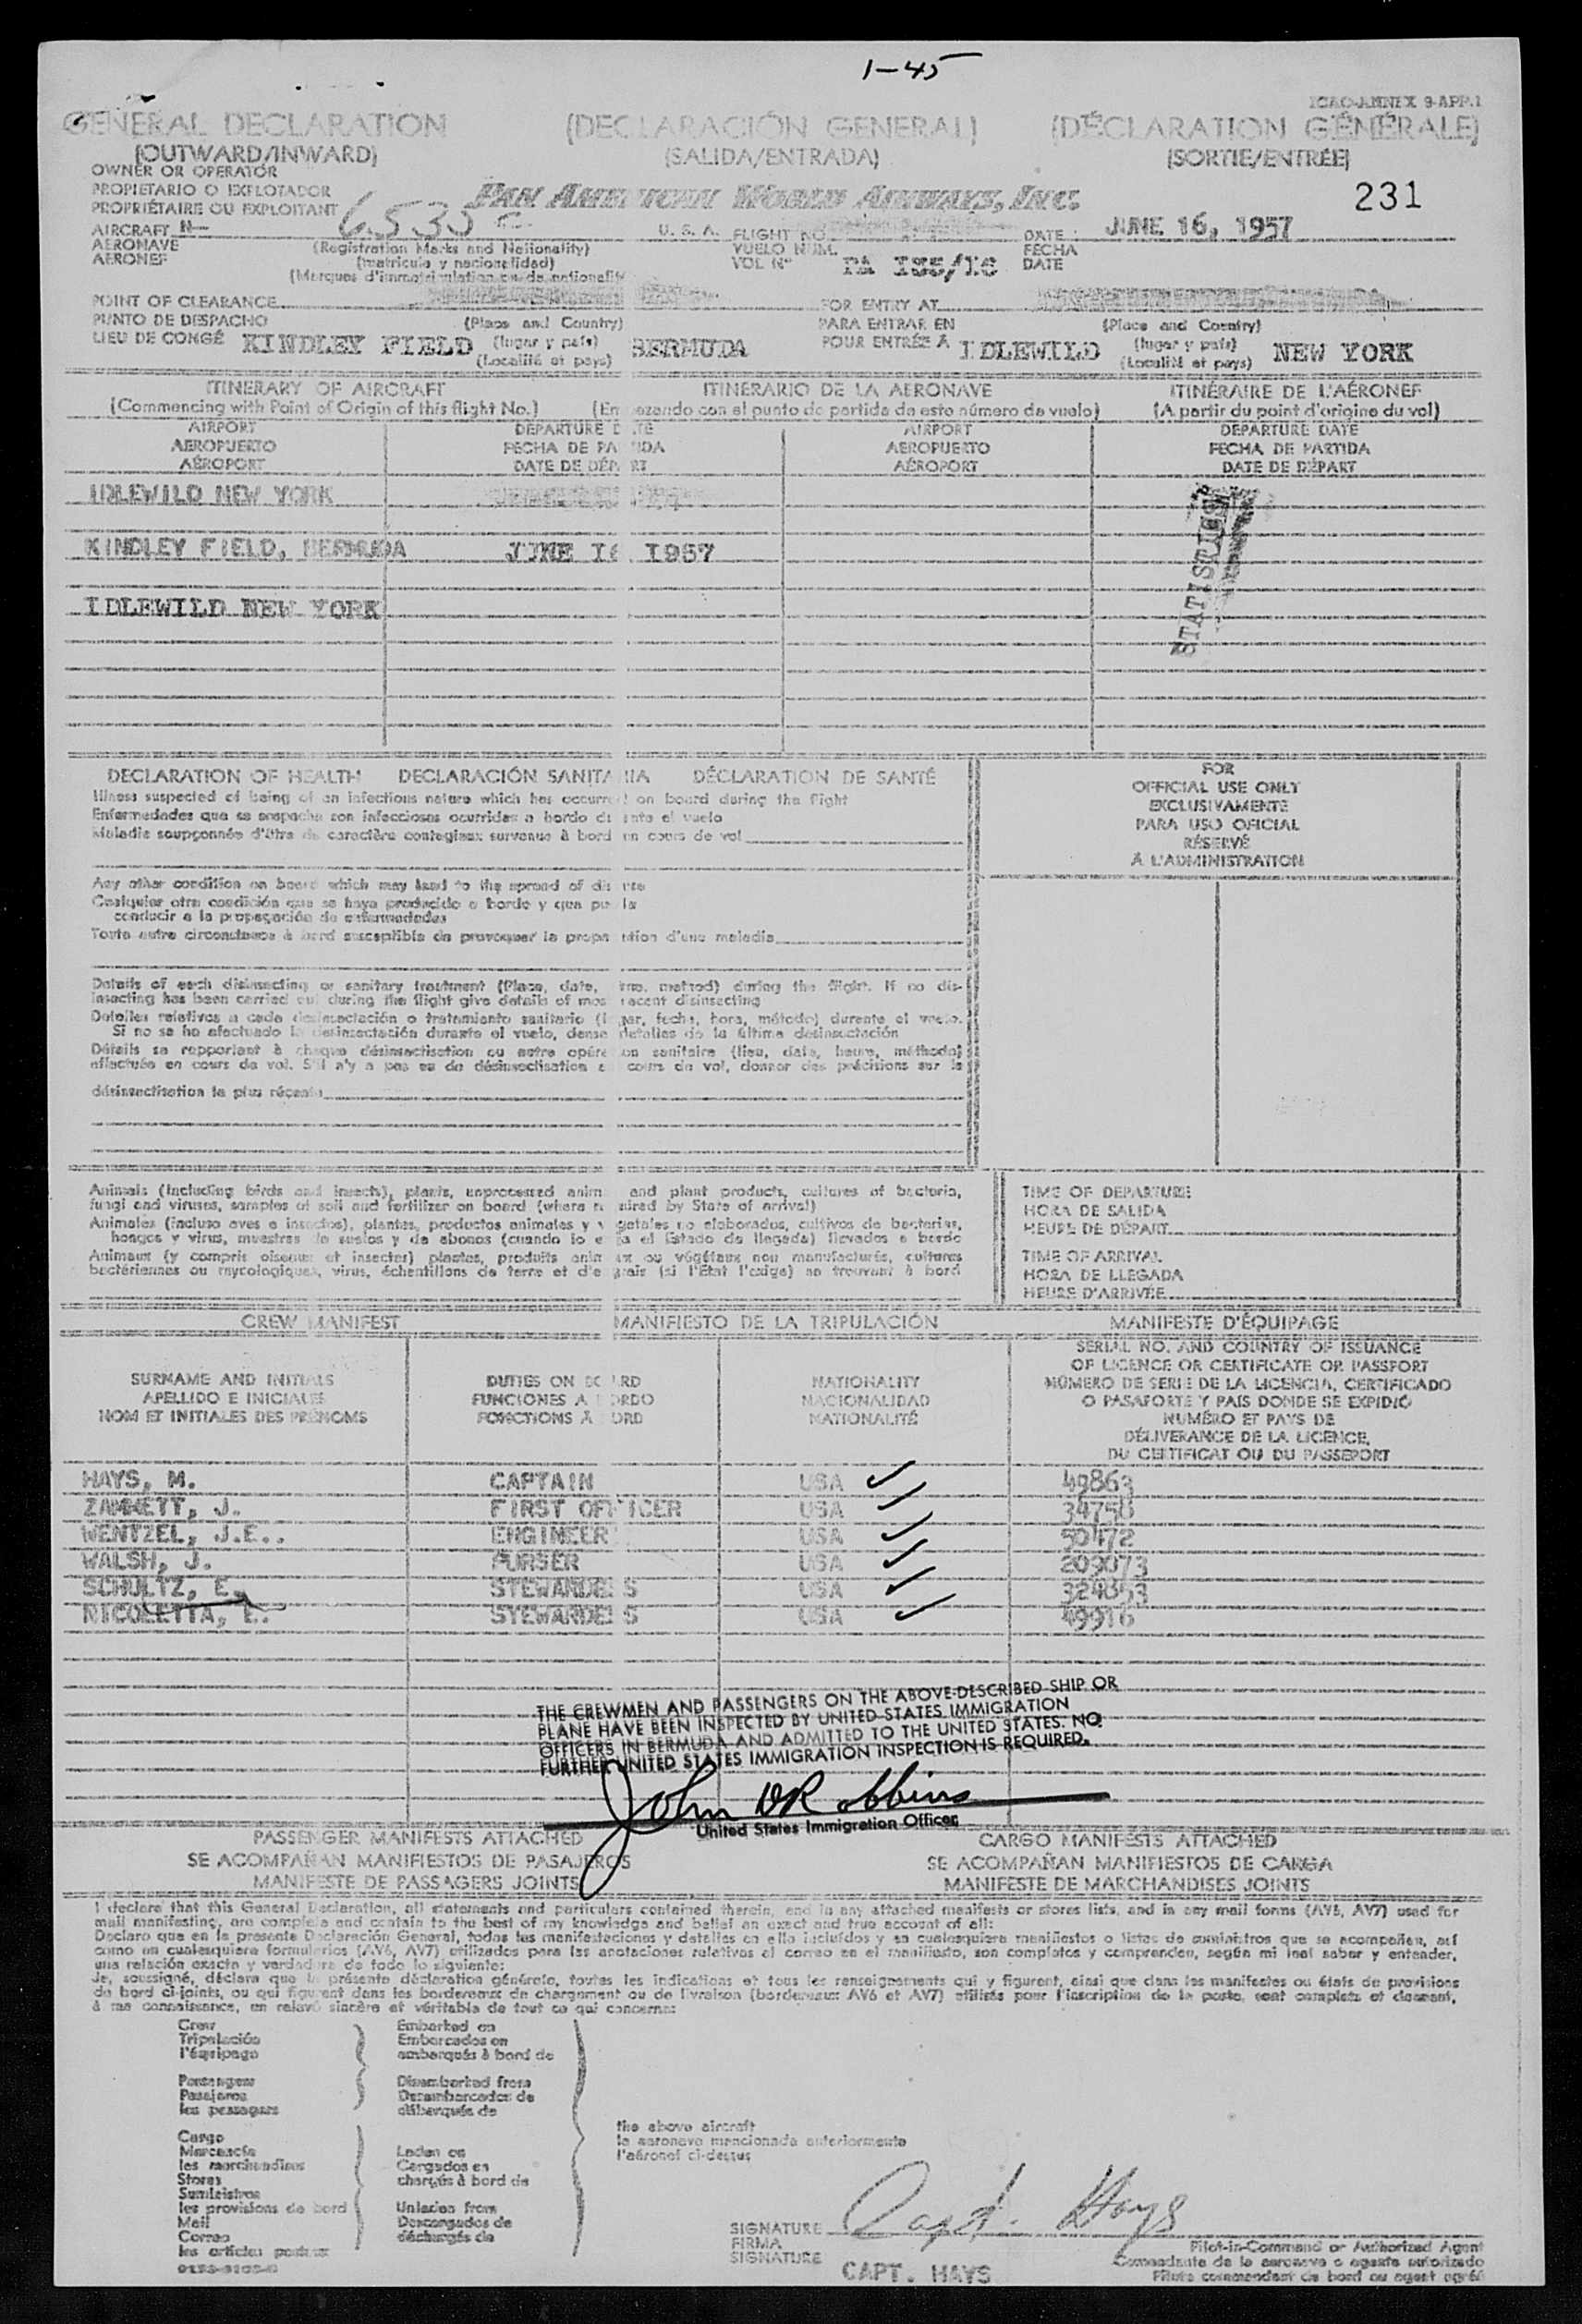 1-45
ICAO-ANNEX 9-APP.1
GENERAL DECLARATION (DECLARACIÓN GENERAL) (DÉCLARATION GÉNÉRALE)
(OUTWARD/INWARD) (SALIDA/ENTRADA) (SORTIE/ENTRÉE)
OWNER OR OPERATOR
PROPIETARIO O EXPLOTADOR
PROPRIÉTAIRE OU EXPLOITANT PAN AMERICAN WORLD AIRWAYS, INC. 231
AIRCRAFT N- 6535 U. S. A. FLIGHT NO. DATE JUNE 16, 1957
AERONAVE (Registration Marks and Nationality) VUELO NUM. FECHA
AERONEF (matricula y nacionalidad) VOL Nº PA 155/16 DATE
(Marques d'immatriculation et de nationalit
POINT OF CLEARANCE FOR ENTRY AT
PUNTO DE DESPACHO (Place and Country) PARA ENTRAR EN (Place and Country)
LIEU DE CONGÉ KINDLEY FIELD (lugar y país) BERMUDA POUR ENTRÉE À IDLEWILD (lugar y país) NEW YORK
(Localité et pays) (Localité et pays)
ITINERARY OF AIRCRAFT ITINERARIO DE LA AERONAVE ITINÉRAIRE DE L'AÉRONEF
(Commencing with Point of Origin of this flight No.) (Em ezando con el punto de partida de este número de vuelo) (A partir du point d'origine du vol)
AIRPORT DEPARTURE D TE AIRPORT DEPARTURE DATE
AEROPUERTO FECHA DE PA IDA AEROPUERTO FECHA DE PARTIDA
AÉROPORT DATE DE DÉP RT AÉROPORT DATE DE DÉPART
IDLEWILD NEW YORK
STATISTICS
KINDLEY FIELD, BERMUDA JUNE 16 1957
IDLEWILD NEW YORK
DECLARATION OF HEALTH DECLARACIÓN SANITA IA DÉCLARATION DE SANTÉ
Illness suspected of being of an infectious nature which has occurre on board during the flight
Enfermedades que se sospecha son infecciosas ocurridas a bordo d ante el vuelo
Maladie soupçonnée d'être de caractère contagieux survenue à bord en cours de vol
FOR
OFFICIAL USE ONLY
EXCLUSIVAMENTE
PARA USO OFICIAL
RÉSERVÉ
À L'ADMINISTRATION
Any other condition on board which may lead to the spread of dis
Cualquier otra condición que se haya producido a bordo y que pu
conducir a la propagación de enfermedades
Toute autre circonstance à bord susceptible de provoquer la propa tion d'une maladie
Details of each disinsecting or sanitary treatment (Place, date, time, method) during the flight. If no dis-
insecting has been carried out during the flight give details of mos recent disinsecting
Detalles relativos a cada desinsectación o tratamiento sanitario (l gar, fecha, hora, método) durante el vuelo.
Si no se ha efectuado la desinsectación durante el vuelo, dense detalles de la última desinsectación
Détails se rapportant à chaque désinsectisation ou autre opéra on sanitaire (lieu, date, heure, méthode)
effectuée en cours de vol. S'il n'y a pas eu de désinsectisation e cours de vol, donner des précisions sur la
désinsectisation la plus récente
Animals (including birds and insects), plants, unprocessed anim and plant products, cultures of bacteria,
fungi and viruses, samples of soil and fertilizer on board (where r uired by State of arrival)
Animales (incluso aves e insectos), plantas, productos animales y v getales no elaborados, cultivos de bacterias,
hongos y virus, muestras de suelos y de abonos (cuando lo e ja el Estado de llegada) llevados a bordo
Animaux (y compris oiseaux et insectes) plantes, produits anim ux ou végétaux non manufacturés, cultures
bactériennes ou mycologiques, virus, échantillons de terre et d'e grais (si l'État l'exige) se trouvant à bord
TIME OF DEPARTURE
HORA DE SALIDA
HEURE DE DÉPART
TIME OF ARRIVAL
HORA DE LLEGADA
HEURE D'ARRIVÉE
CREW MANIFEST MANIFIESTO DE LA TRIPULACIÓN MANIFESTE D'ÉQUIPAGE
SURNAME AND INITIALS
APELLIDO E INICIALES
NOM ET INITIALES DES PRÉNOMS
DUTIES ON BO RD
FUNCIONES A BORDO
FONCTIONS À ORD
NATIONALITY
NACIONALIDAD
NATIONALITÉ
SERIAL NO. AND COUNTRY OF ISSUANCE
OF LICENCE OR CERTIFICATE OR PASSPORT
NÚMERO DE SERIE DE LA LICENCIA, CERTIFICADO
O PASAPORTE Y PAÍS DONDE SE EXPIDIÓ
NUMÉRO ET PAYS DE
DÉLIVERANCE DE LA LICENCE,
DU CERTIFICAT OU DU PASSEPORT
HAYS, M. CAPTAIN USA ✓ 49863
ZAMMETT, J. FIRST OFFICER USA ✓ 34750
WENTZEL, J.E.. ENGINEER USA ✓ 50472
WALSH, J. PURSER USA ✓ 209073
SCHULTZ, E. STEWARDESS USA ✓ 324853
NICOLETTA, L. SYEWARDESS USA ✓ 49916
THE CREWMEN AND PASSENGERS ON THE ABOVE-DESCRIBED SHIP OR
PLANE HAVE BEEN INSPECTED BY UNITED STATES IMMIGRATION
OFFICERS IN BERMUDA AND ADMITTED TO THE UNITED STATES. NO
FURTHER UNITED STATES IMMIGRATION INSPECTION IS REQUIRED.
John D Robbins
United States Immigration Officer
PASSENGER MANIFESTS ATTACHED CARGO MANIFESTS ATTACHED
SE ACOMPAÑAN MANIFIESTOS DE PASAJEROS SE ACOMPAÑAN MANIFIESTOS DE CARGA
MANIFESTE DE PASSAGERS JOINTS MANIFESTE DE MARCHANDISES JOINTS
I declare that this General Declaration, all statements and particulars contained therein, and in any attached manifests or stores lists, and in any mail forms (AV6, AV7) used for
mail manifesting, are complete and contain to the best of my knowledge and belief an exact and true account of all:
Declaro que en la presente Declaración General, todas las manifestaciones y detalles en ella incluídos y en cualesquiera manifiestos o listas de suministros que se acompañen, así
como en cualesquiera formularios (AV6, AV7) utilizados para las anotaciones relativas al correo en el manifiesto, son completos y comprenden, según mi leal saber y entender,
una relación exacta y verdadera de todo lo siguiente:
Je, soussigné, déclare que la présente déclaration générale, toutes les indications et tous les renseignements qui y figurent, ainsi que dans les manifestes ou états de provisions
de bord ci-joints, ou qui figurent dans les bordereaux de chargement ou de livraison (bordereaux AV6 et AV7) utilisés pour l'inscription de la poste, sont complets et donnent,
à ma connaissance, un relevé sincère et véritable de tout ce qui concerne:
Crew
Tripulación
l'équipage
Embarked on
Embarcados en
embarqués à bord de
Passengers
Pasajeros
les passagers
Disembarked from
Desembarcados de
débarqués de
the above aircraft
la aeronave mencionada anteriormente
l'aéronef ci-dessus
Cargo
Mercancía
les marchandises
Stores
Suministros
les provisions de bord
Mail
Correo
les articles postaux
Laden on
Cargados en
chargés à bord de
Unladen from
Descargados de
déchargés de
SIGNATURE Capt. Hays
FIRMA
SIGNATURE
CAPT. HAYS
Pilot-in-Command or Authorized Agent
Comandante de la aeronave o agente autorizado
Pilote commandant de bord ou agent agréé